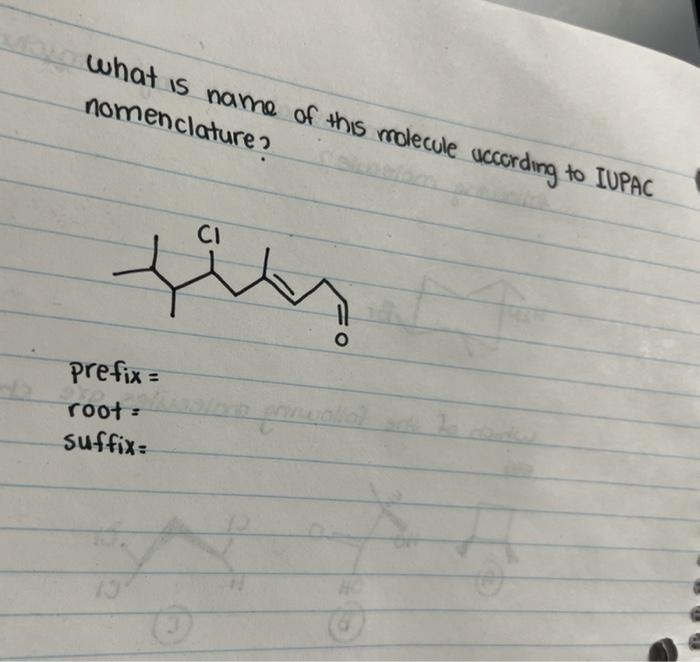 what is name of this molecule according to IUPAC
nomenclature?
Cl
O
prefix =
root =
suffix=